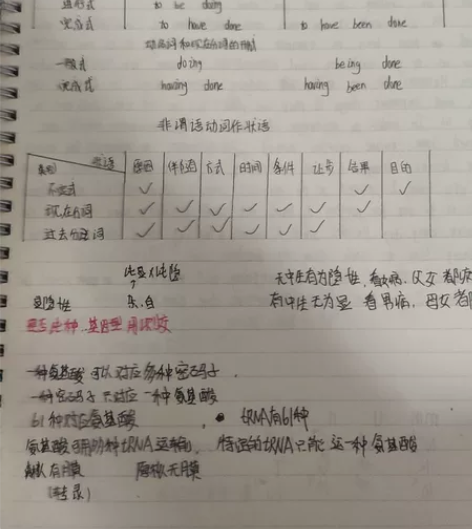 进行式 to be doing
完成式 to have done to have been done
动名词和现在分词的形式
一般式 doing being done
完成式 having done having been done
非谓语动词作状语
类别 状语 原因 伴随 方式 时间 条件 让步 结果 目的
不定式 ✓ ✓ ✓
现在分词 ✓ ✓ ✓ ✓ ✓ ✓ ✓
过去分词 ✓ ✓ ✓ ✓ ✓ ✓
无中生有为隐性,看女病,父女都病
显隐性
有中生无为显 看男病,母女都
一种氨基酸可以对应多种密码子.
一种密码子只对应一种氨基酸
61种对应氨基酸 , tRNA有61种
氨基酸可用多种tRNA运输, 特定的tRNA只能运一种氨基酸
有膜 无膜
(转录)